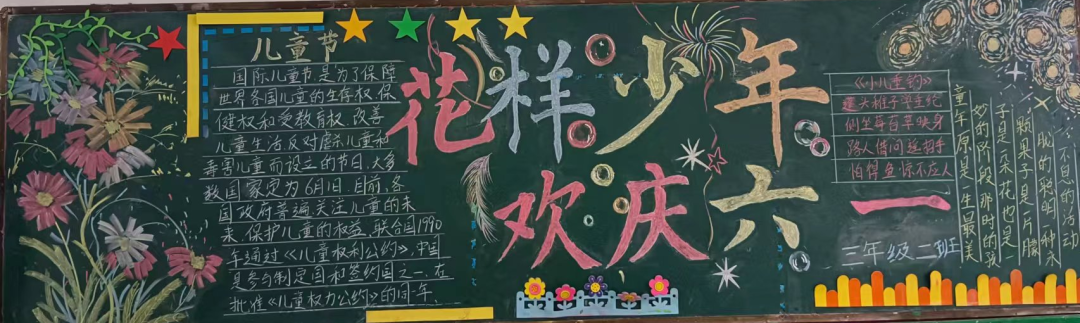 儿童节
国际儿童节是为了保障
世界各国儿童的生存权、保
健权和受教育权、改善
儿童生活及对虐杀儿童和
毒害儿童而设立的节日、大多
数国家定为6月1日、目前、各
国政府普遍关注儿童的未
来、保护儿童的权益、联合国1990
年通过《儿童权利公约》,中国
是参与制定国和签约国之一、在
批准《儿童权力公约》的同年、
花样少年
欢庆六一
蓬头稚子学垂纶
侧坐莓苔草映身
路人借问遥招手
怕得鱼惊不应人
三年级二班
不白日的活动
肌的聪明一种永
颗果子是一片朦
子是一朵花也是一
妙的阶段那时的孩
童年原是一生最美